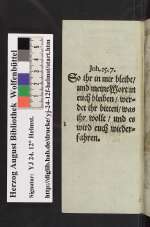 Joh. 15. 7.
So ihr in mir bleibet/
und meine Wort in
euch bleiben/ wer-
det ihr bitten/ was
ihr wolle/ und es
wird euch wieder-
fahren.
Herzog August Bibliothek Wolfenbüttel
Signatur: YJ 24. 12° Helmst.
http://diglib.hab.de/drucke/yj-24-12f-helmst/start.htm